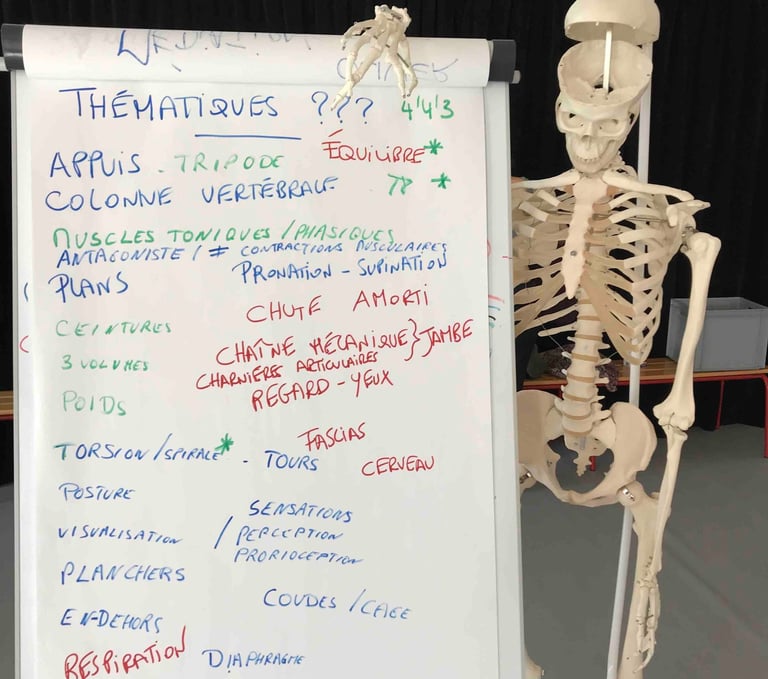 THÉMATIQUES ??? 4'4'3
ÉQUILIBRE*
APPUIS - TRIPODE
COLONNE VERTÉBRALE *
MUSCLES TONIQUES / PHASIQUES
ANTAGONISTE / ≠ CONTRACTIONS MUSCULAIRES
PLANS PRONATION - SUPINATION
CHUTE AMORTI
CEINTURES
CHAÎNE MÉCANIQUE } JAMBE
3 VOLUMES
CHARNIÈRES ARTICULAIRES
REGARD - YEUX
POIDS
FASCIAS
TORSION / SPIRALE* - TOURS
CERVEAU
POSTURE
SENSATIONS
VISUALISATION / PERCEPTION
PRORIOCEPTION
PLANCHERS
COUDES / CAGE
EN-DEHORS
RESPIRATION DIAPHRAGME